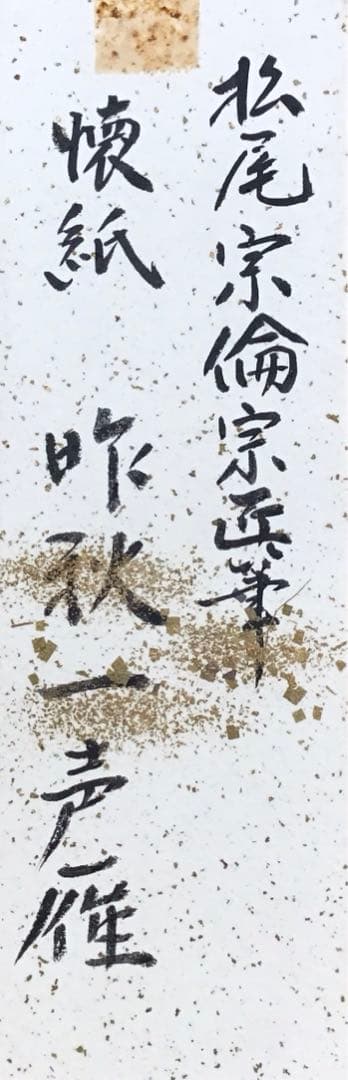 松尾宗倫宗匠筆
懐紙 昨秋一声雁